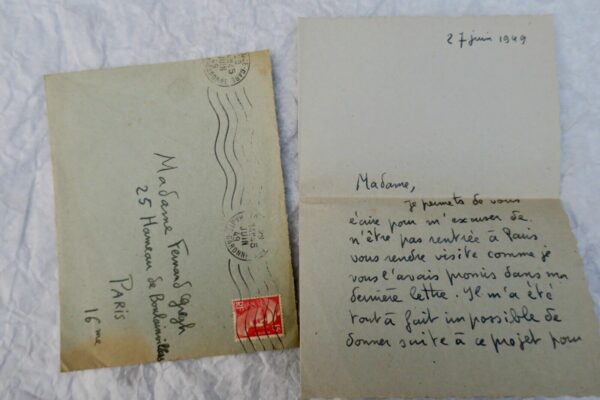 Madame Fernand Gregh
25 Hameau de Boulainvilliers
PARIS
16 me
27 juin 1949
Madame,
Je permets de vous
écrire pour m'excuser de
n'être pas rentrée à Paris
vous rendre visite comme je
vous l'avais promis dans ma
dernière lettre. Il m'a été
tout à fait impossible de
donner suite à ce projet pour